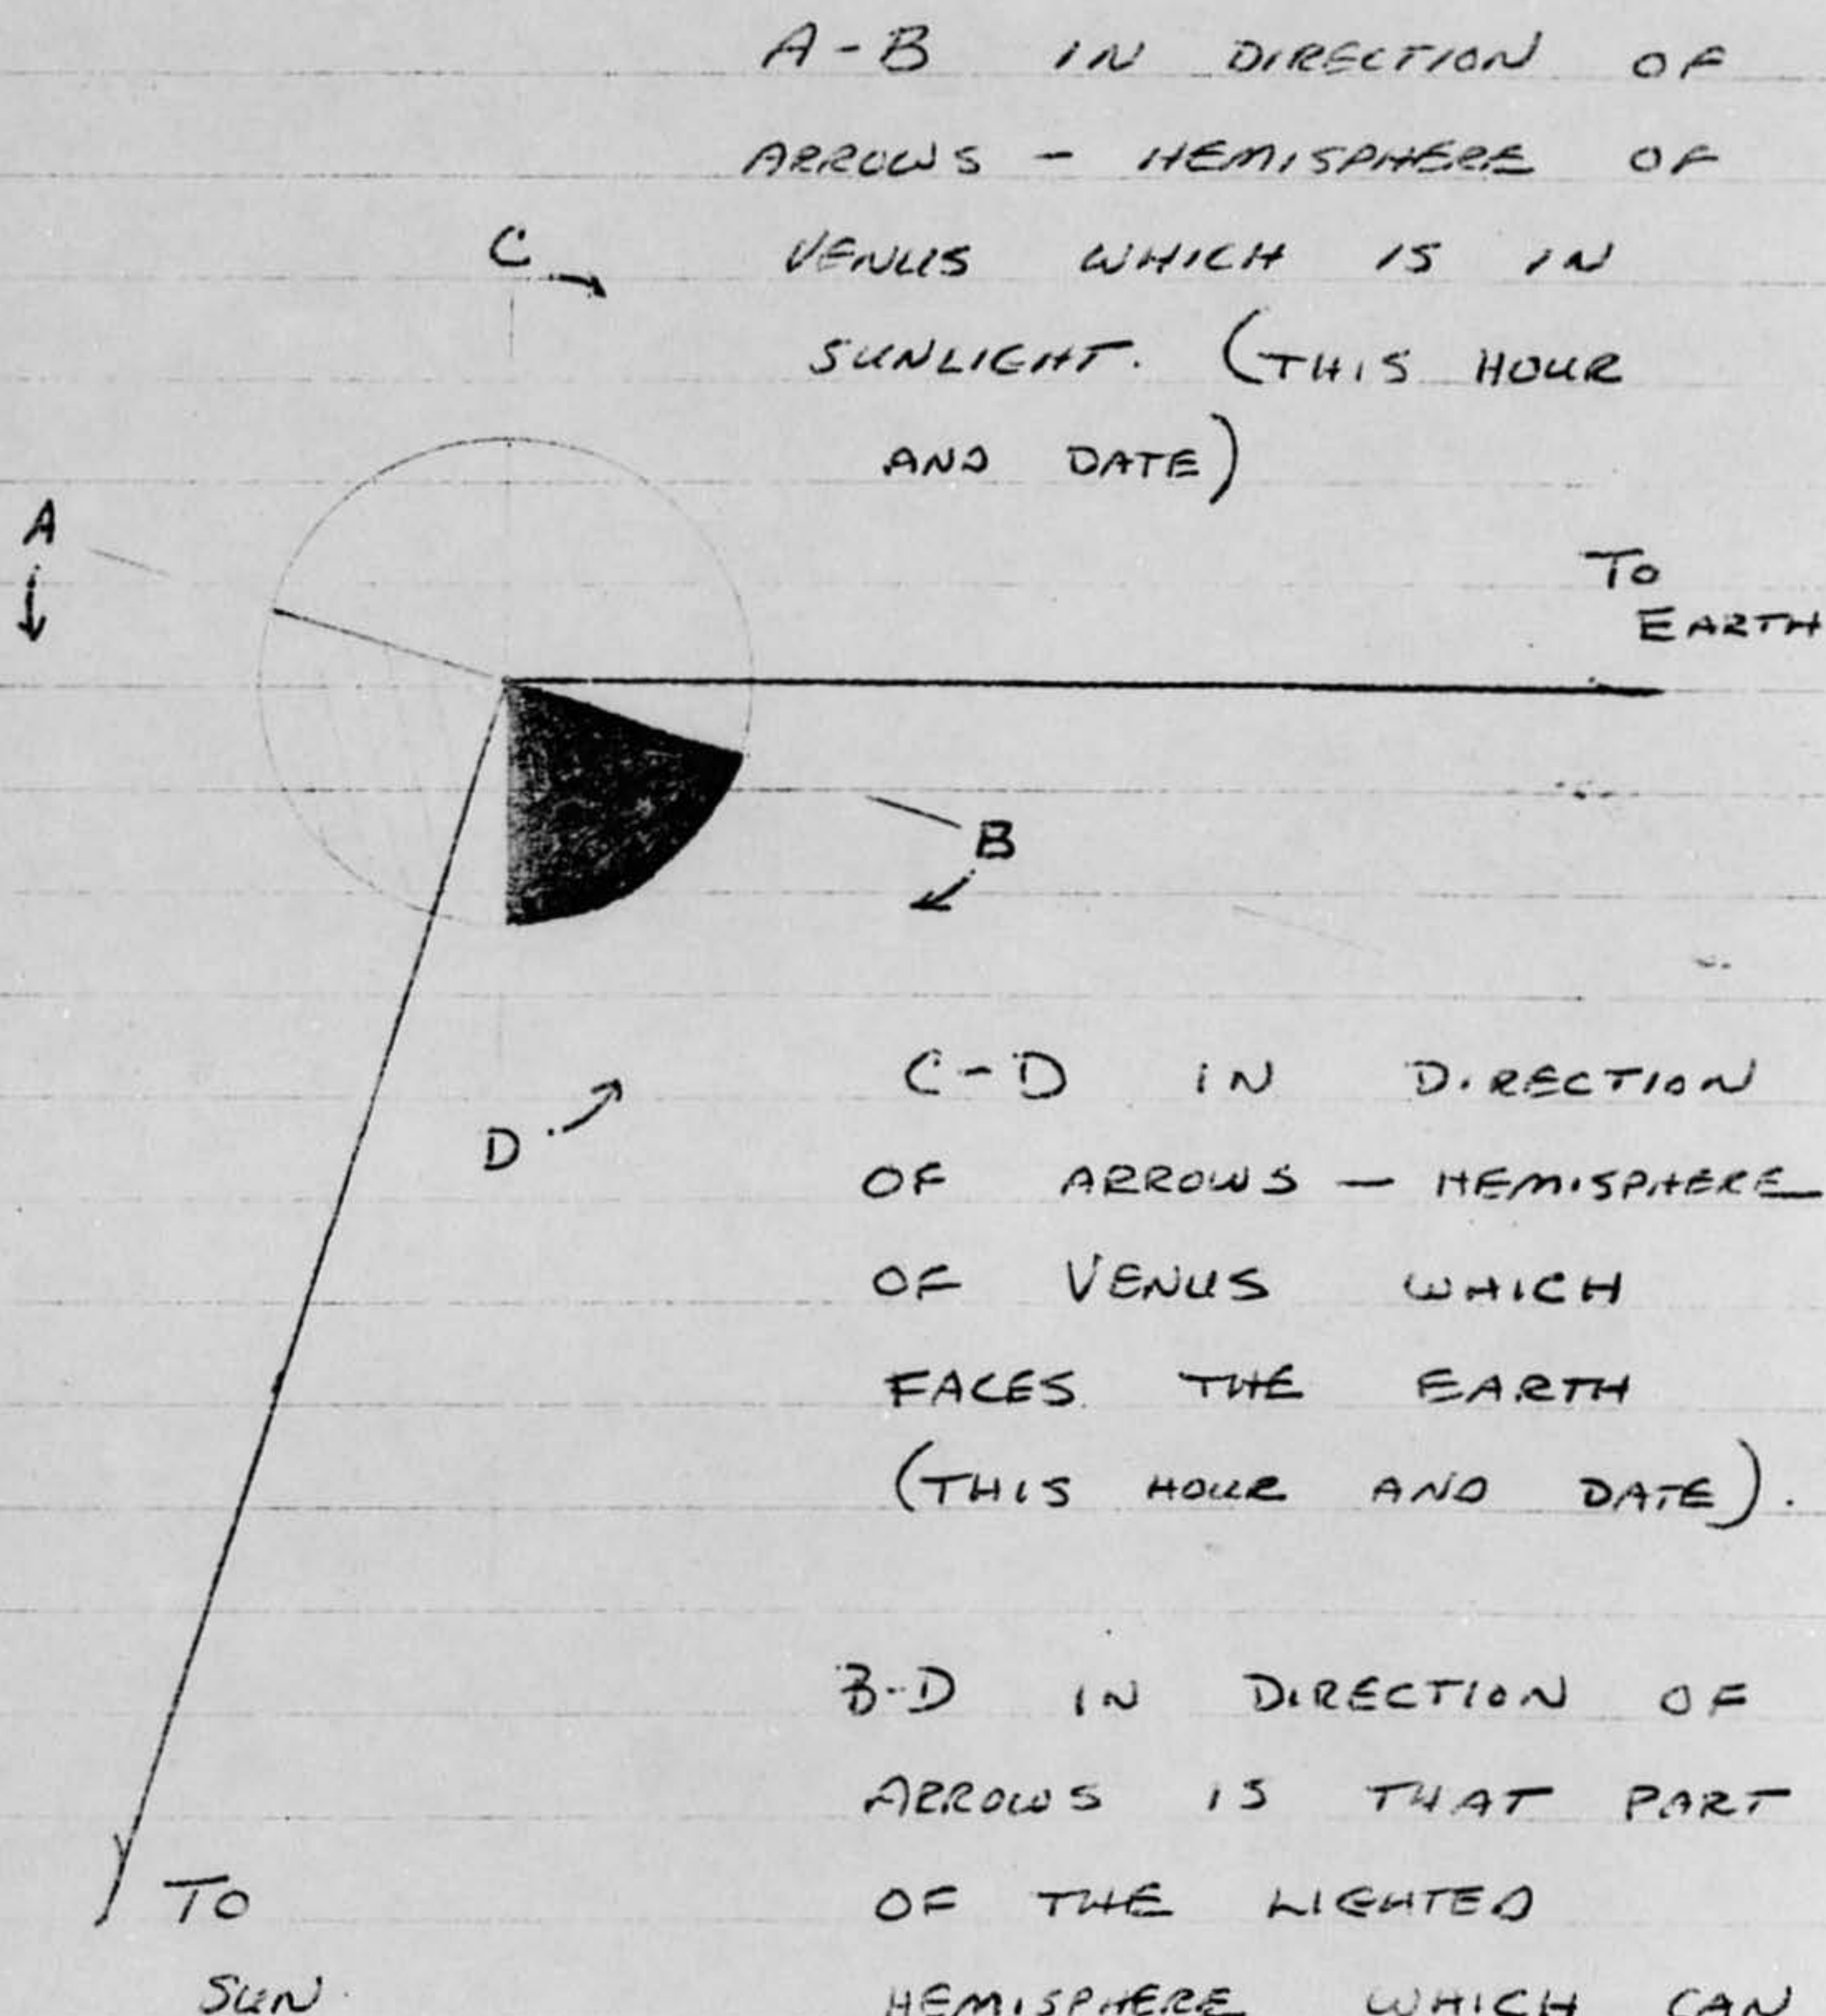 A-B IN DIRECTION OF
ARROWS - HEMISPHERE OF
VENUS WHICH IS IN
SUNLIGHT. (THIS HOUR
AND DATE)
C
A
TO
EARTH
B
D
C-D IN DIRECTION
OF ARROWS - HEMISPHERE
OF VENUS WHICH
FACES THE EARTH
(THIS HOUR AND DATE).
B-D IN DIRECTION OF
ARROWS IS THAT PART
OF THE LIGHTED
HEMISPHERE WHICH CAN
TO
SUN